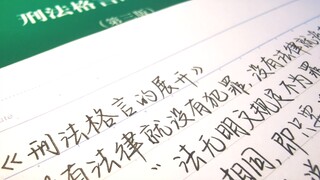 刑法格言
(第三版)
《刑法格言的展开》
有法律就没有犯罪,没有法律就
"法无明文规定不为罪
相同,即只